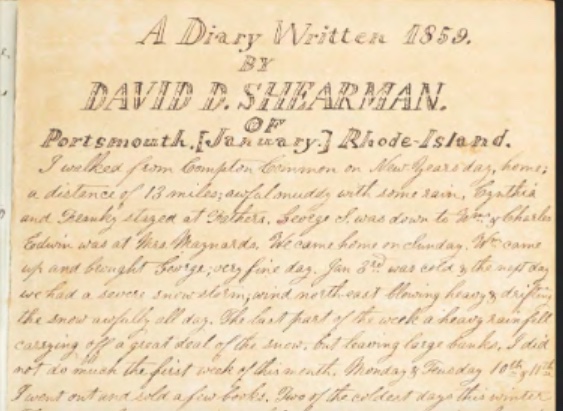 A Diary Written 1859.
BY
DAVID D. SHEARMAN.
OF
Portsmouth, [January.] Rhode-Island.
I walked from Compton Common on New Years day, home;
a distance of 13 miles; awful muddy with some rain, Cynthia
and Franky stayed at Fathers, George S. was down to Wms. & Charles
Edwin was at Mrs Maynards. We came home on Sunday. Wm. came
up and brought George; very fine day. Jan 3rd was cold & the next day
we had a severe snow storm; wind north-east blowing heavy & drifting
the snow awfully all day. The last part of the week a heavy rain fell
carrying off a great deal of the snow, but leaving large banks. I did
not do much the first week of this month. Monday & Tuesday 10th & 11th
I went out and sold a few books. Two of the coldest days this winter